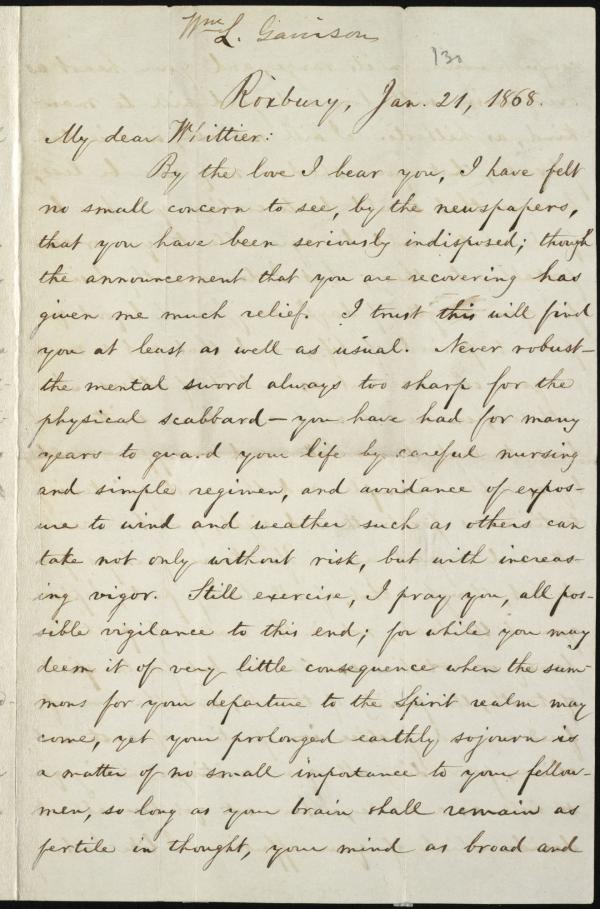 Wm L. Garrison
130
Roxbury, Jan. 21, 1868.
My dear Whittier:
By the love I bear you, I have felt
no small concern to see, by the newspapers,
that you have been seriously indisposed; though
the announcement that you are recovering has
given me much relief. I trust this will find
you at least as well as usual. Never robust—
the mental sword always too sharp for the
physical scabbard—you have had for many
years to guard your life by careful nursing
and simple regimen, and avoidance of expos-
ure to wind and weather such as others can
take not only without risk, but with increas-
ing vigor. Still exercise, I pray you, all pos-
sible vigilance to this end; for while you may
deem it of very little consequence when the sum-
mons for your departure to the Spirit realm may
come, yet your prolonged earthly sojourn is
a matter of no small importance to your fellow-
men, so long as your brain shall remain as
fertile in thought, your mind as broad and